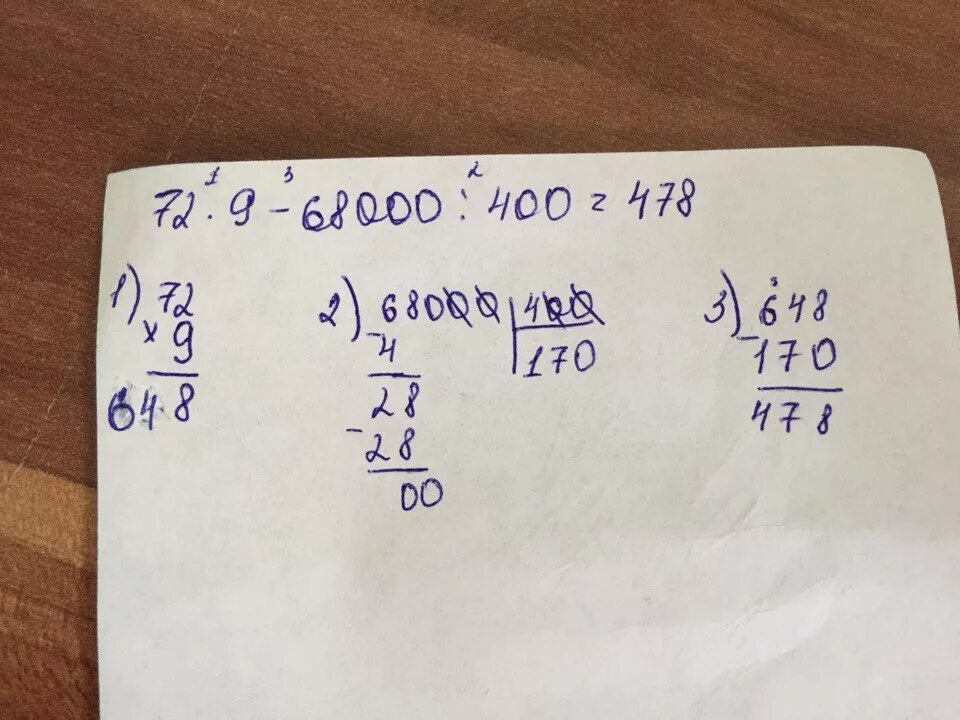 1 3 2
72 · 9 - 68000 : 400 = 478
1) 72
× 9
648
2) 68000 400
- 4 170
28
- 28
00
3) 648
- 170
478